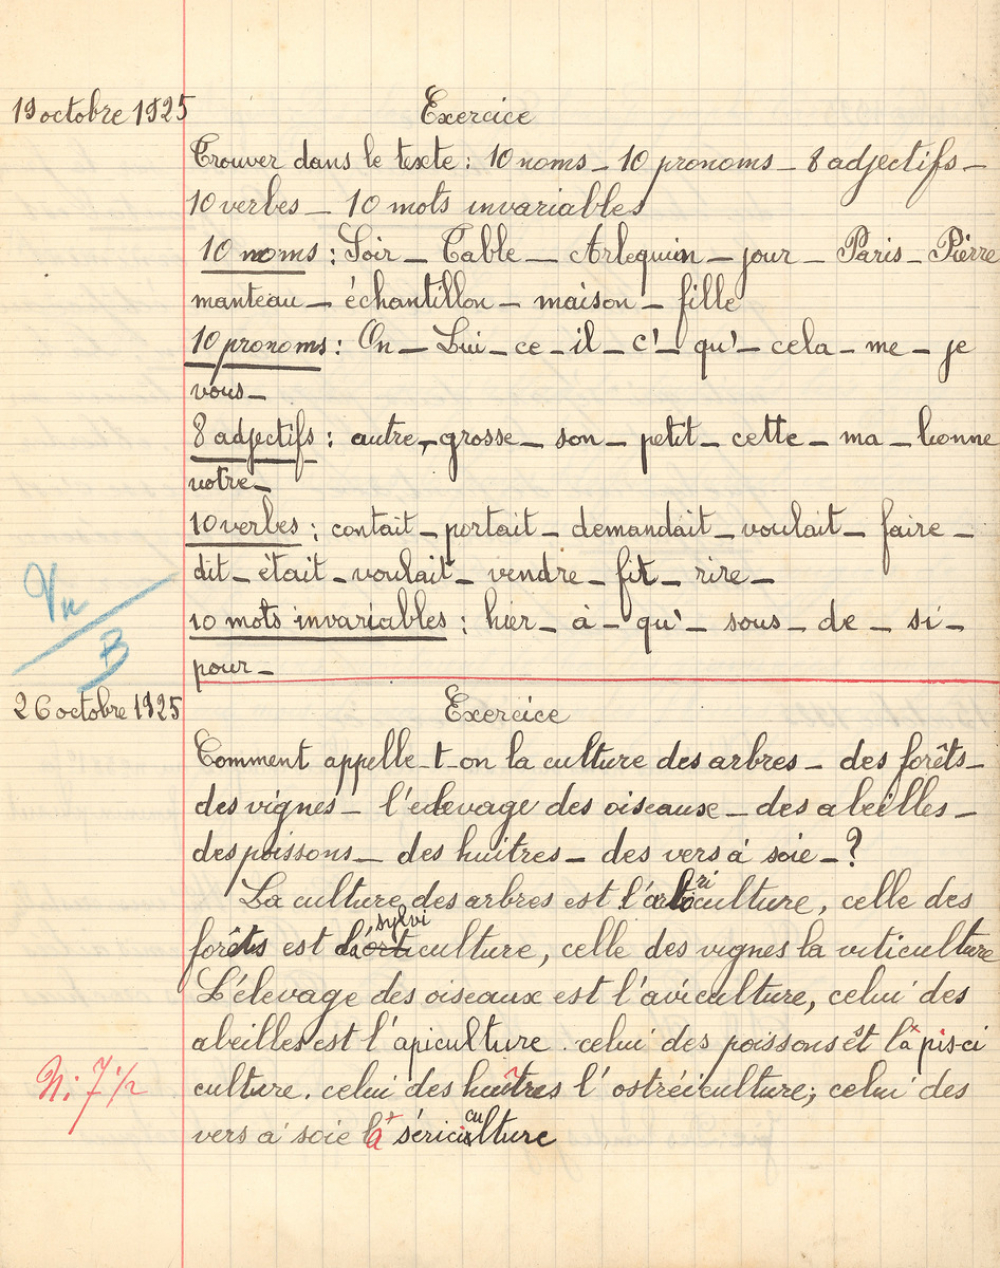 19 octobre 1925
Exercice
Trouver dans le texte : 10 noms _ 10 pronoms _ 8 adjectifs _
10 verbes _ 10 mots invariables
10 noms : Soir _ Table _ Arlequin _ jour _ Paris _ Pierre
manteau _ échantillon _ maison _ fille
10 pronoms : On _ Lui _ ce _ il _ c' _ qu' _ cela _ me _ je
vous _
8 adjectifs : autre _ grosse _ son _ petit _ cette _ ma _ bonne
votre _
10 verbes : contait _ portait _ demandait _ voulait _ faire _
dit _ était _ voulait _ vendre _ fit _ rire _
10 mots invariables : hier _ à _ qu' _ sous _ de _ si _
pour _
Vu
B
26 octobre 1925
Exercice
Comment appelle-t-on la culture des arbres _ des forêts _
des vignes _ l'elevage des oiseause _ des abeilles _
des poissons _ des huitres _ des vers à soie _ ?
La culture des arbres est l'arboriculture, celle des
forêts est la sylviculture, celle des vignes la viticulture
L'élevage des oiseaux est l'aviculture, celui des
abeilles est l'apiculture. celui des poissons est la pisci
culture. celui des huîtres l'ostréiculture; celui des
vers à soie la sériciculture
N: 7 1/2